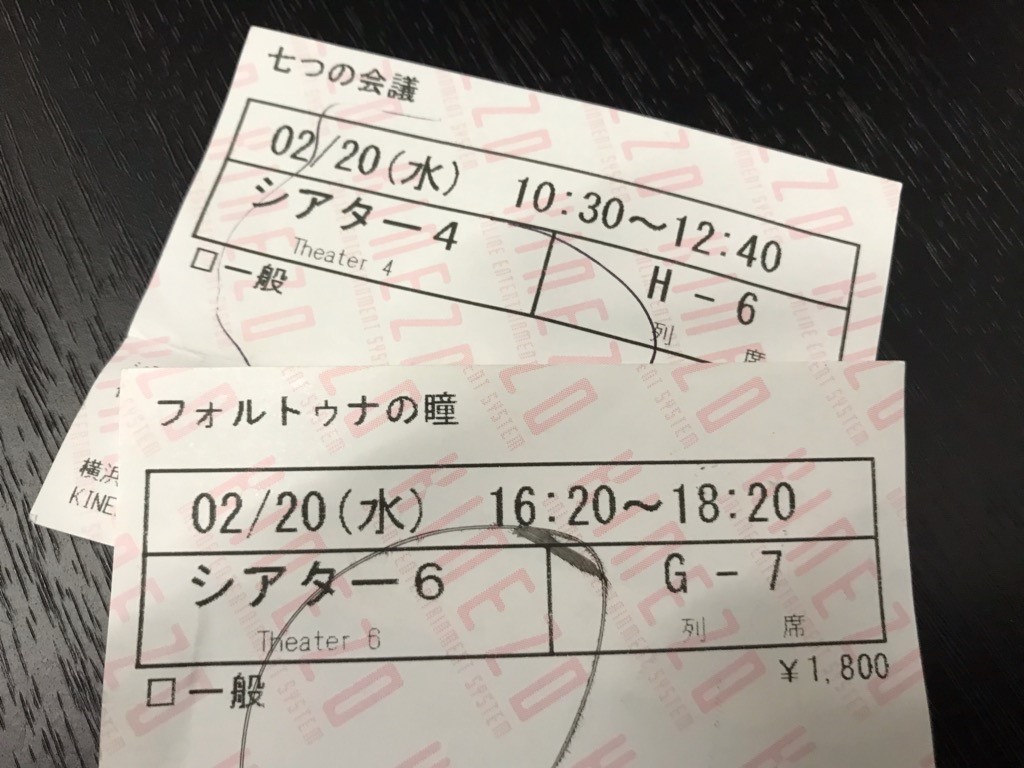 七つの会議
02/20(水) 10:30～12:40
シアター4 H - 6
Theater 4 列 席
□一般
横浜
KINE
フォルトゥナの瞳
02/20(水) 16:20～18:20
シアター6 G - 7
Theater 6 列 席
□一般 ¥1,800